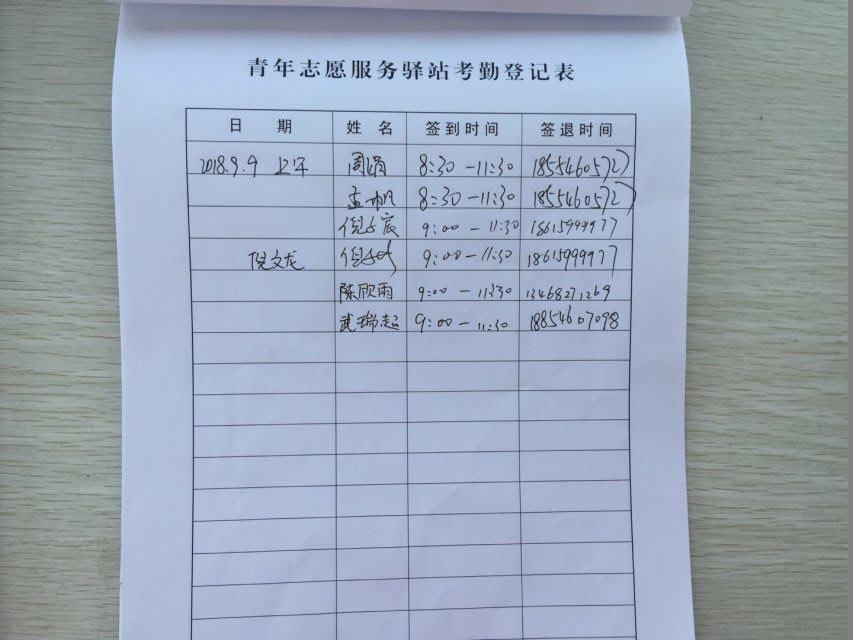 青年志愿服务驿站考勤登记表
日 期 姓 名 签到时间 签退时间
2018.9.9 上午 周娟 8:30-11:30 18554605727
孟帆 8:30-11:30 18554605727
倪子宸 9:00-11:30 18615999977
倪文龙 9:00-11:30 18615999977
陈欣雨 9:00-11:30 13468271269
武瑞超 9:00-11:30 18854607098